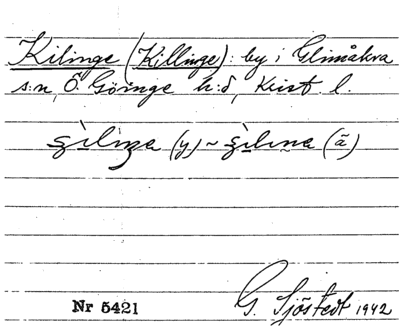 Kilinge (Killinge): by i Glimåkra
s:n, Ö. Göinge h:d, Krist. l.
(y) ~ (ä)
Nr 5421 G. Sjöstedt 1942